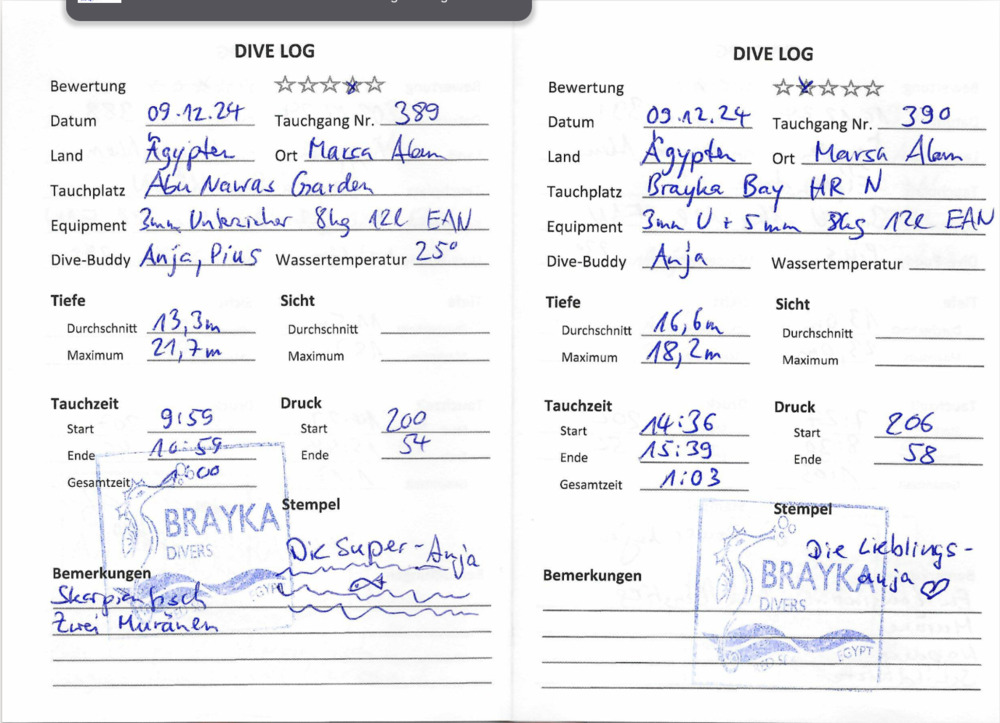 DIVE LOG
Bewertung
Datum 09.12.24 Tauchgang Nr. 389
Land Ägypten Ort Marsa Alam
Tauchplatz Abu Nawas Garden
Equipment 3mm Unterzieher 8kg 12l EAN
Dive-Buddy Anja, Pius Wassertemperatur 25°
Tiefe Sicht
Durchschnitt 13,3m Durchschnitt
Maximum 21,7m Maximum
Tauchzeit Druck
Start 9:59 Start 200
Ende 10:59 Ende 54
Gesamtzeit 1:00
Stempel
BRAYKA
DIVERS
EGYPT
Die Super-Anja
Bemerkungen
Skorpionfisch
Zwei Muränen
DIVE LOG
Bewertung
Datum 09.12.24 Tauchgang Nr. 390
Land Ägypten Ort Marsa Alam
Tauchplatz Brayka Bay HR N
Equipment 3mm U + 5mm 8kg 12l EAN
Dive-Buddy Anja Wassertemperatur
Tiefe Sicht
Durchschnitt 16,6m Durchschnitt
Maximum 18,2m Maximum
Tauchzeit Druck
Start 14:36 Start 206
Ende 15:39 Ende 58
Gesamtzeit 1:03
Stempel
Die Lieblings-
anja
BRAYKA
DIVERS
EGYPT
Bemerkungen